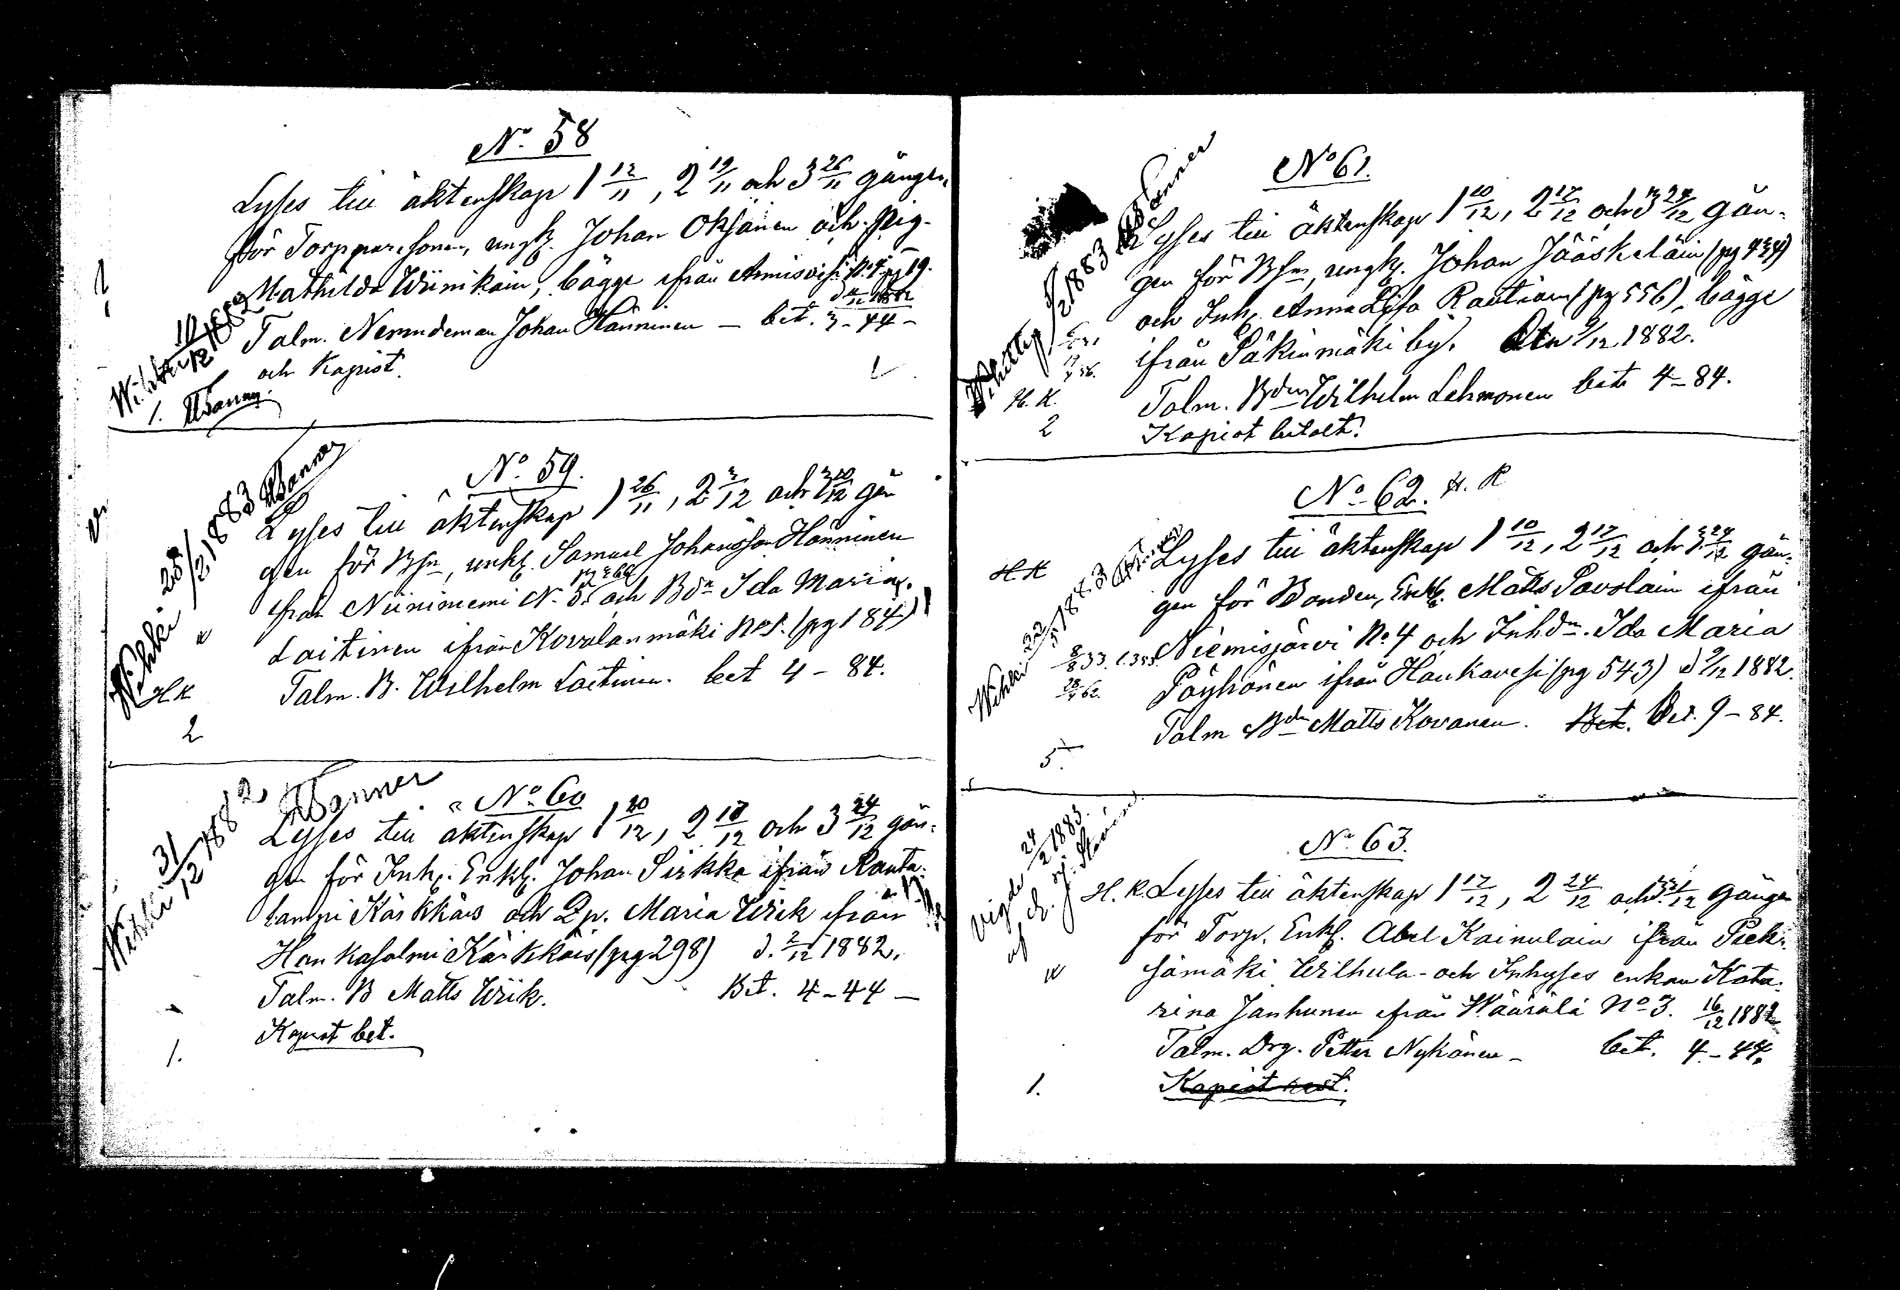 No 58
Lyses till äktenskap 1 12/11, 2 19/11 och 3 26/11 gången
för Torpparesonen, ungk. Johan Oksanen och pig.
Mathilda Wiinikain, bägge ifrån Armisvesi No 4 pg 19.
Talm. Nemndeman Johan Hänninen — bet. 3 - 44 -
och Kapiot.
Wihki 10/12 1882
1. HBanner
No 59.
Lyses till äktenskap 1 26/11, 2 3/12 och 3 10/12 gån
gen för Bsn, unkl. Samuel Johansson Hänninen
från Niinimemi No 5. och Bdr Ida Maria
Laitinen ifrån Kovalanmäki No 1. (pg 184)
Talm. B. Wilhelm Laitinen. bet 4 - 84.
Wihki 28/2 1883 HBanner
H K
2
No 60
Lyses till äktenskap 1 10/12, 2 17/12 och 3 24/12 gån-
gen för Inh. Enkl. Johan Sirkka ifrån Rauta-
lampi Kärkkäis och Dr. Maria Wiik ifrån
Hankasalmi Kärkkäis (pg 298) d. 2/12 1882.
Talm. B Matts Wiik. Bet. 4 - 44 —
Kapiot bet.
Wihki 31/12 1882 HBanner
1.
No 61.
Lyses till äktenskap 1 10/12, 2 17/12 och 3 24/12 gån-
gen för Bsn, ungk. Johan Jääskeläin (pg 434)
och Inh. Anna Lisa Rautiain (pg 556), bägge
ifrån Säkinmäki by. den 9/12 1882.
Talm. Bden Wilhelm Lehmonen bet 4 - 84.
Kapiot betalt.
H. K.
2
No 62. H. K
H. K
Lyses till äktenskap 1 10/12, 2 17/12 och 3 24/12 gån-
gen för Bonden, Enkl. Matts Pavolain ifrån
Niemisjärvi No 4 och Inhdr. Ida Maria
Pöyhönen ifrån Haukavesi (pg 543) d 9/12 1882.
Talm Bden Matts Kovanen. Bet. Bet. 9 - 84.
5.
No 63.
H. K. Lyses till äktenskap 1 17/12, 2 24/12 och 3 31/12 gången
för Torp. Enkl. Abel Kainulain ifrån Piek-
sämäki Wilhula- och Inhyses enkan Kata-
rina Janhunen ifrån Häärälä No 3. 16/12 1882
Talm. Drg. Petter Nykänen - bet. 4 - 44.
Kapiot rest.
Vigde 24/2 1883.
1.